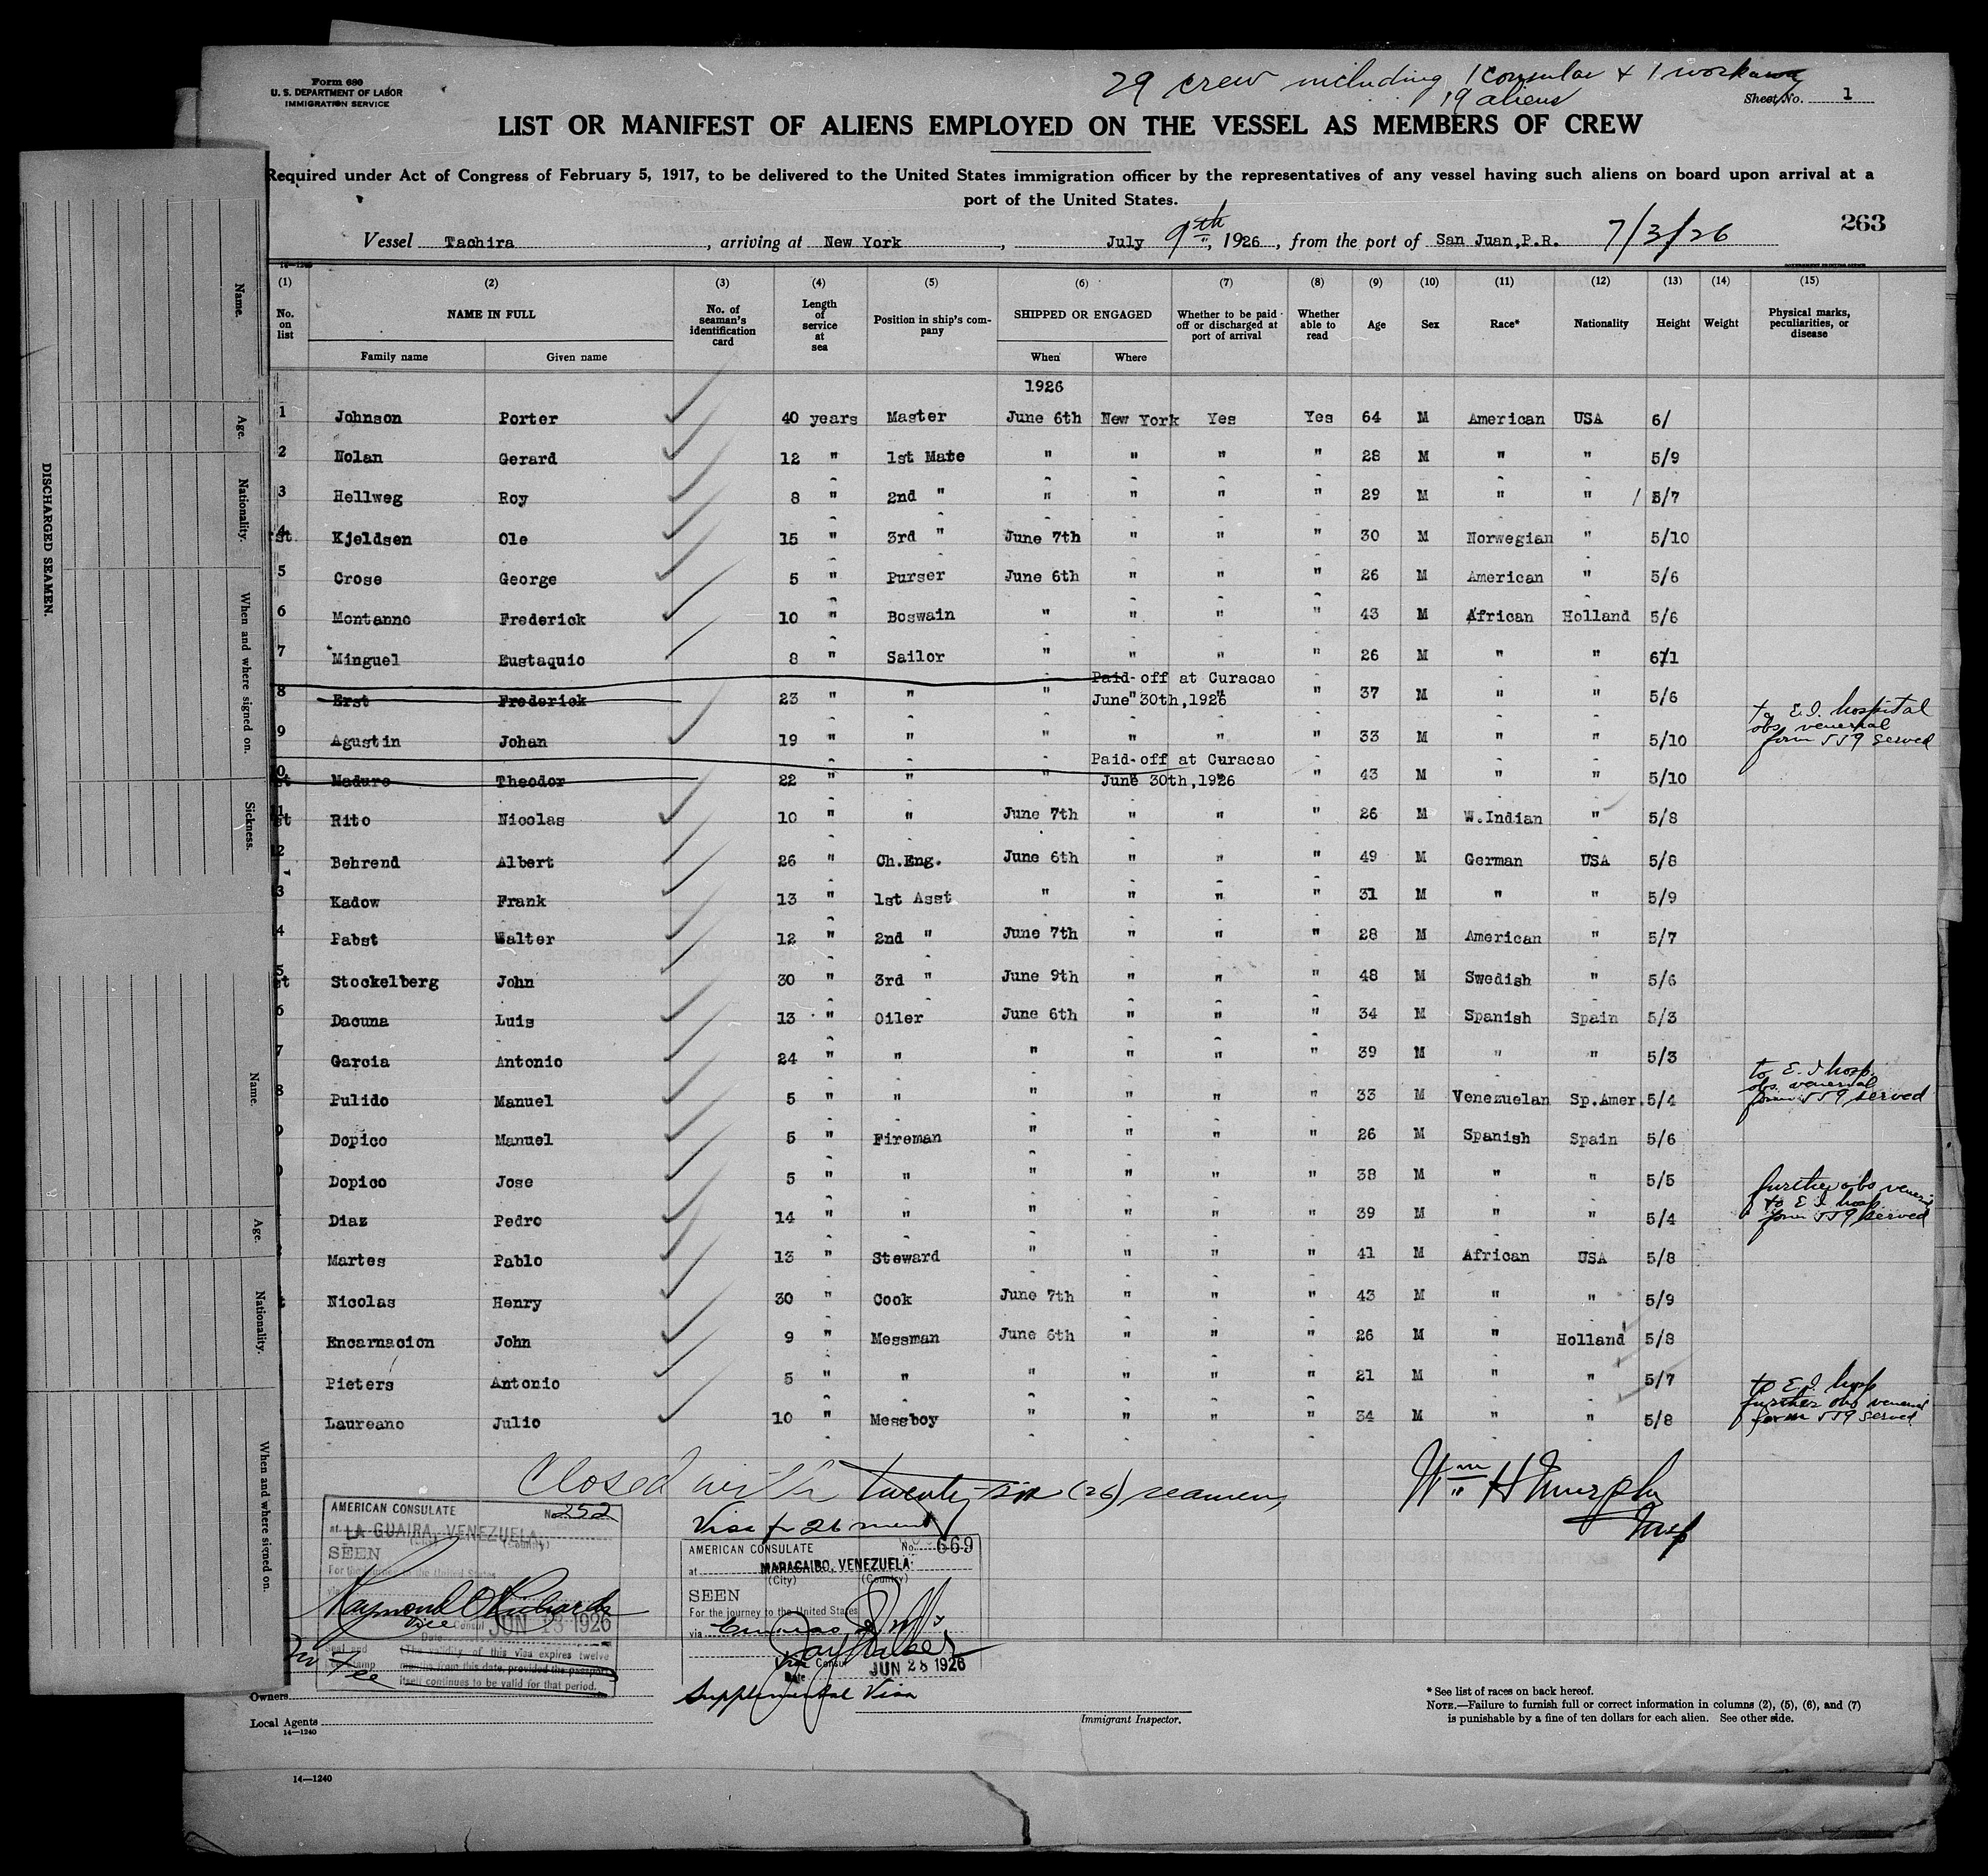 Form 680
U. S. DEPARTMENT OF LABOR
IMMIGRATION SERVICE
29 crew including 1 consular + 1 workaway
19 aliens
Sheet No. 1
LIST OR MANIFEST OF ALIENS EMPLOYED ON THE VESSEL AS MEMBERS OF CREW
Required under Act of Congress of February 5, 1917, to be delivered to the United States immigration officer by the representatives of any vessel having such aliens on board upon arrival at a
port of the United States.
263
Vessel Tachira, arriving at New York, July 9th, 1926, from the port of San Juan,P.R. 7/3/26
14—1240
(1) (2) (3) (4) (5) (6) (7) (8) (9) (10) (11) (12) (13) (14) (15)
No. on list NAME IN FULL No. of seaman's identification card Length of service at sea Position in ship's company SHIPPED OR ENGAGED Whether to be paid off or discharged at port of arrival Whether able to read Age Sex Race* Nationality Height Weight Physical marks, peculiarities, or disease
Family name Given name When Where
1926
1 Johnson Porter 40 years Master June 6th New York Yes Yes 64 M American USA 6/
2 Nolan Gerard 12 " 1st Mate " " " " 28 M " " 5/9
3 Hellweg Roy 8 " 2nd " " " " " 29 M " " 5/7
4 st Kjeldsen Ole 15 " 3rd " June 7th " " " 30 M Norwegian " 5/10
5 Crose George 5 " Purser June 6th " " " 26 M American " 5/6
6 Montanno Frederick 10 " Boswain " " " " 43 M African Holland 5/6
7 Minguel Eustaquio 8 " Sailor " " " " 26 M " " 6/1
Paid-off at Curacao
8 Erst Frederick 23 " " " June 30th,1926 " 37 M " " 5/6
to E.I. hospital
obs venereal
form 559 served
9 Agustin Johan 19 " " " " " " 33 M " " 5/10
Paid-off at Curacao
0 st Maduro Theodor 22 " " " June 30th,1926 " 43 M " " 5/10
11 st Rito Nicolas 10 " " June 7th " " " 26 M W.Indian " 5/8
12 Behrend Albert 26 " Ch.Eng. June 6th " " " 49 M German USA 5/8
3 Kadow Frank 13 " 1st Asst " " " " 31 M " " 5/9
4 Pabst Walter 12 " 2nd " June 7th " " " 28 M American " 5/7
5 st Stockelberg John 30 " 3rd " June 9th " " " 48 M Swedish " 5/6
6 Dacuna Luis 13 " Oiler June 6th " " " 34 M Spanish Spain 5/3
7 Garcia Antonio 24 " " " " " " 39 M " " 5/3
to E.I hosp.
obs venereal
form 559 served
8 Pulido Manuel 5 " " " " " " 33 M Venezuelan Sp.Amer. 5/4
9 Dopico Manuel 5 " Fireman " " " " 26 M Spanish Spain 5/6
Dopico Jose 5 " " " " " " 38 M " " 5/5
further obs venereal
to E I hosp
form 559 served
Diaz Pedro 14 " " " " " " 39 M " " 5/4
Martes Pablo 13 " Steward " " " " 41 M African USA 5/8
Nicolas Henry 30 " Cook June 7th " " " 43 M " " 5/9
Encarnacion John 9 " Messman June 6th " " " 26 M " Holland 5/8
Pieters Antonio 5 " " " " " " 21 M " " 5/7
to E.I. hosp
further obs venereal
form 559 served
Laureano Julio 10 " Messboy " " " " 34 M " " 5/8
Closed with twenty-six (26) seamen
Visa for 26 men
Wm H Murphy
Insp
AMERICAN CONSULATE No. 252
at LA GUAIRA, VENEZUELA
(City) (Country)
SEEN
For the journey to the United States
via
Raymond O Richards
Vice Consul
Date JUN 23 1926
Seal and
(The validity of this visa expires twelve
months from this date, provided the passport
itself continues to be valid for that period.
No Fee
AMERICAN CONSULATE No. 669
at MARACAIBO, VENEZUELA
(City) (Country)
SEEN
For the journey to the United States
via Curacao
Vice Consul
Date JUN 28 1926
Supplemental Visa
Owners
Local Agents
14—1240
Immigrant Inspector.
* See list of races on back hereof.
NOTE.—Failure to furnish full or correct information in columns (2), (5), (6), and (7)
is punishable by a fine of ten dollars for each alien. See other side.
14—1240
DISCHARGED SEAMEN.
Name.
Age.
Nationality.
When and where signed on.
Sickness.
Name.
Age.
Nationality.
When and where signed on.